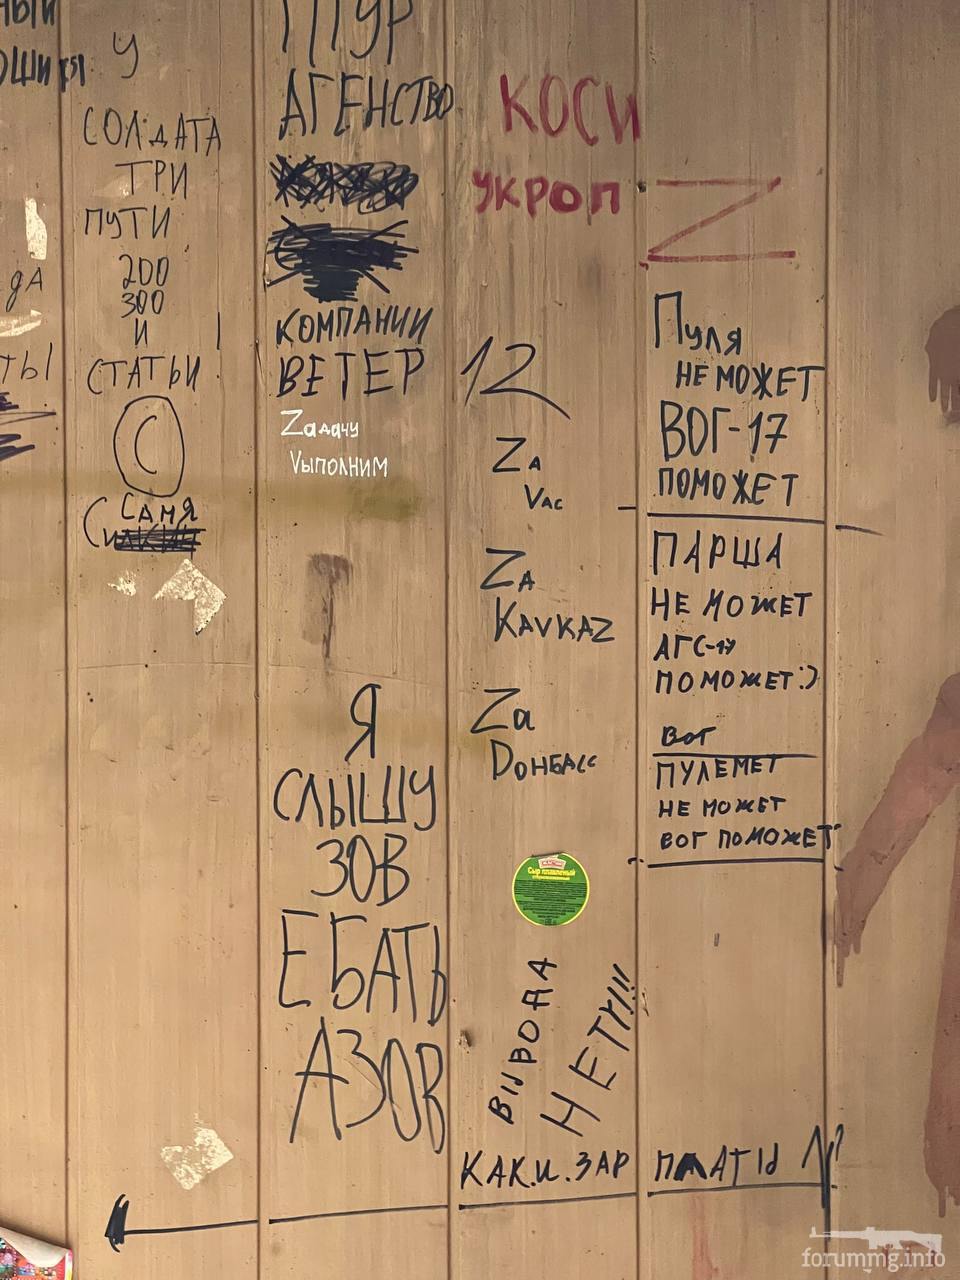 У
СОЛДАТА
ТРИ
ПУТИ
200
300
И
СТАТЬИ
С
САМЯ
ТУР
АГЕНСТВО
КОМПАНИИ
ВЕТЕР
Zадачу
Vыполним
Я
СЛЫШУ
ЗОВ
ЕБАТЬ
АЗОВ
КОСИ
УКРОП
12
ZA
VAC
ZA
KAVKAZ
Za
DОНБАСС
Сыр плавленый
ВЫВОДА
НЕТУ!!!
КАК.И.ЗАР ПЛАТЫ
Z
Пуля
НЕ МОЖЕТ
ВОГ-17
ПОМОЖЕТ
ПАРША
НЕ МОЖЕТ
АГС-17
ПОМОЖЕТ:)
ВОГ
ПУЛЕМЕТ
НЕ МОЖЕТ
ВОГ ПОМОЖЕТ
forummg.info